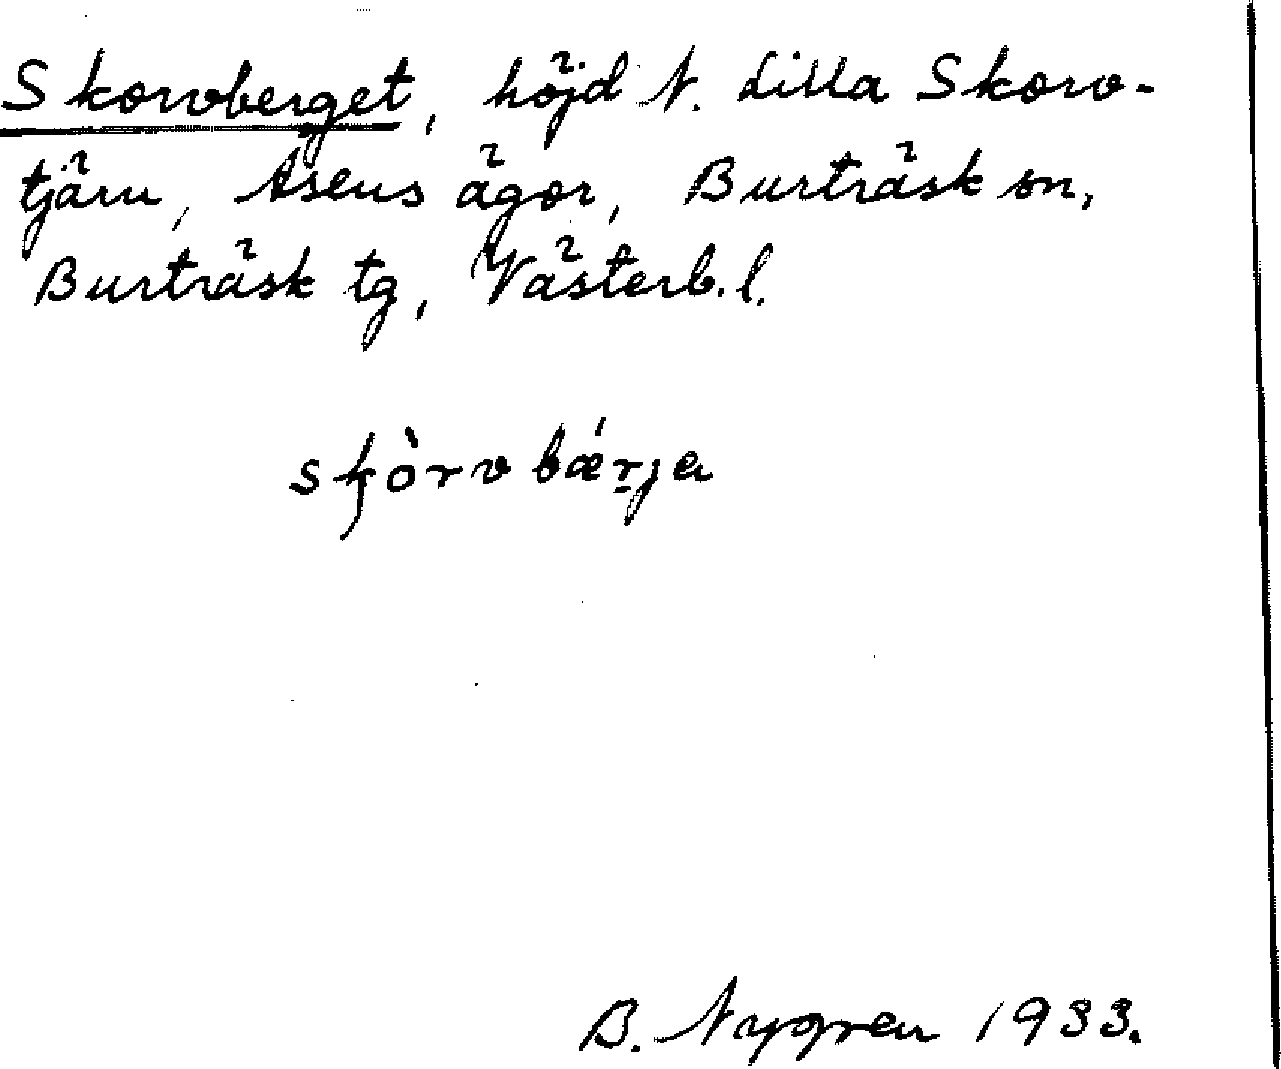 Skorvberget, höjd N. Lilla Skorv-
tjärn, Åsens ägor, Burträsk sn,
Burträsk tg, Västerb. l.
skòrvbǽrjɐ
B. Nygren 1933.